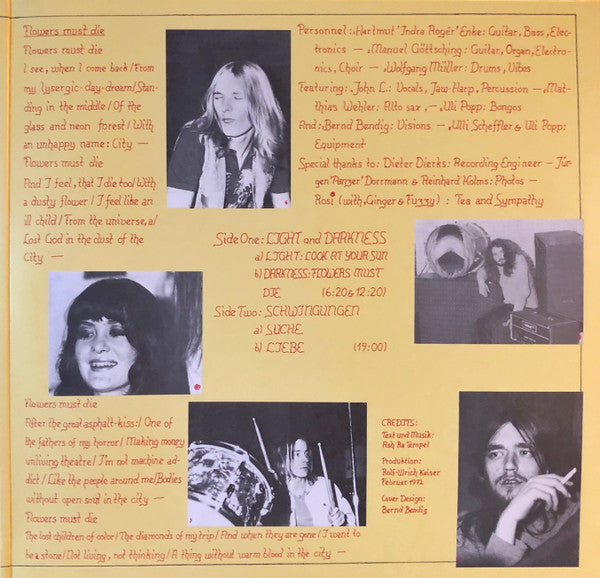 Flowers must die
Flowers must die
I see, when I come back/From
my lysergic-day-dream/Stan-
ding in the middle/Of the
glass and neon forest/With
an unhappy name: City —
Flowers must die
And I feel, that I die too/With
a dusty flower/I feel like an
ill child/From the universe, a/
Lost God in the dust of the
City —
Personnel: Hartmut "Indra Roger" Enke: Guitar, Bass, Elec-
tronics — Manuel Göttsching: Guitar, Organ, Electro-
nics, Choir — Wolfgang Müller: Drums, Vibes
Featuring: John L.: Vocals, Jaw Harp, Percussion — Mat-
thias Wehler: Alto sax, — Uli Popp: Bongos
And: Bernd Bendig: Visions — Ulli Scheffler & Uli Popp:
Equipment
Special thanks to: Dieter Dierks: Recording Engineer — Jür-
gen "Panzer" Dorrmann & Reinhard Kolms: Photos —
Rosi (with Ginger & Fuzzy): Tea and Sympathy
Side One: LIGHT and DARKNESS
a) LIGHT: LOOK AT YOUR SUN
b) DARKNESS: FLOWERS MUST
DIE (6:20 & 12:20)
Side Two: SCHWINGUNGEN
a) SUCHE
b) LIEBE (19:00)
Flowers must die
After the great asphalt-kiss:/ One of
the fathers of my horror/Making money
unliving theatre/I'm not machine ad-
dict/Like the people around me/Bodies
without open soul in the city —
Flowers must die
The lost children of color/The diamonds of my trip/And when they are gone/I want to
be a stone/Not living, not thinking/A thing without warm blood in the city —
CREDITS:
Text und Musik:
Ash Ra Tempel
Produktion:
Rolf-Ulrich Kaiser
Februar 1972
Cover Design:
Bernd Bendig